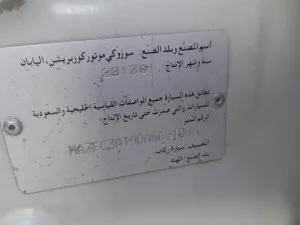 اسم المصنع وبلد الصنع: سوزوكي موتور كوربريشن، اليابان
سنة وشهر الإنتاج:
تطابق هذه السيارة جميع المواصفات القياسية الخليجية والسعودية
للسيارات والتي صدرت حتى تاريخ الإنتاج:
الرقم المميز
التصنيف: سيارة ركاب.
بلد الصنع: الهند